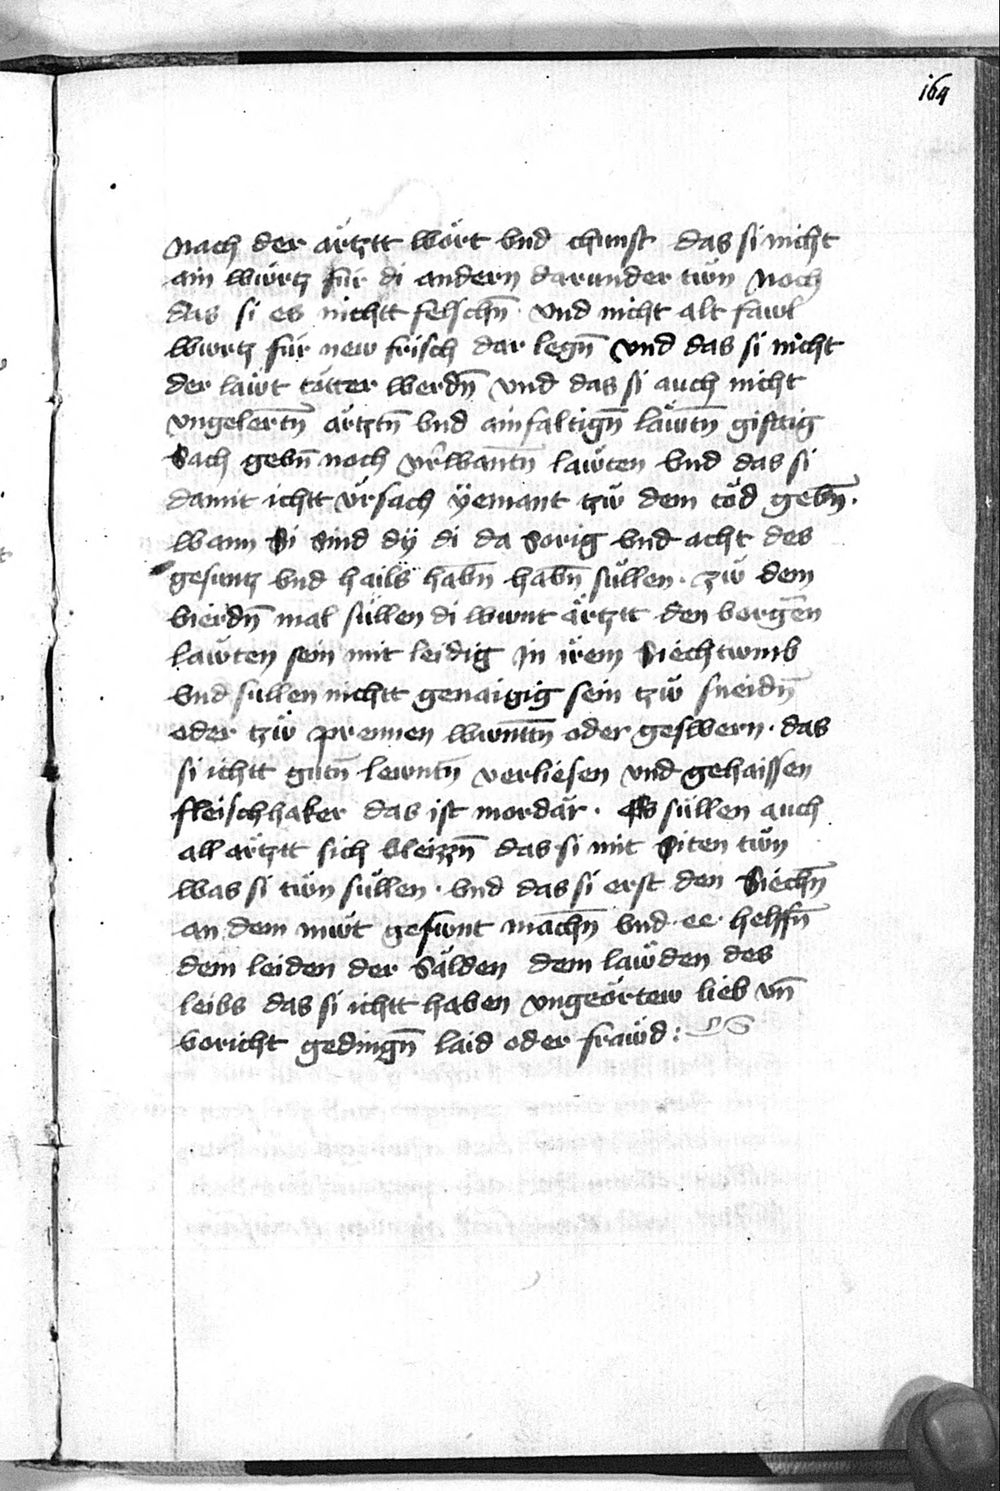 164
nach der ärtztt wört vnd chunst das si nicht
ain würtz für di andern darunder tün noch
das si es nichtt felschn̄ · vnd nicht alt fawl
wurtz für new frisch dar legn̄ vnd das si nicht
der läwt tötter werdn̄ vnd das si auch nicht
vngelertn̄ ärtztn̄ vnd ainfaltign̄ läwtn̄ gifttig
Sach gebn̄ noch läwten vnd das si
damit ichtt vrsach ÿemant tzw̆ dem töd gebn̄ ·
wann Si sind dÿ di da sorig vnd acht des
gesuntz vnd hails habn̄ habn̄ süllen · zw̆ dem
vierdn̄ mal süllen di wunt ärtztt den vorgēn
läwten sein mit leidig in irem Siechtumb
vnd sullen nichtt genaigig sein tzw̆ sneidn̄
oder tzw̆ prennen wuntn̄ oder geswern · das
si ichtt gutn̄ lewntn̄ verliesen vnd gehaissen
fleischhaker das ist mordär · Es süllen auch
all ärtztt sich vleizzn̄ das si mit Siten tün
was si tün süllen · vnd das si erst den Siechn̄
an dem mu̇t gesunt machn̄ vnd ee helffn̄
dem leiden der Sälden dem läwden des
leibs das si ichtt haben vngeörtew lieb vn̄
voricht gedingn̄ laid oder fräwd :